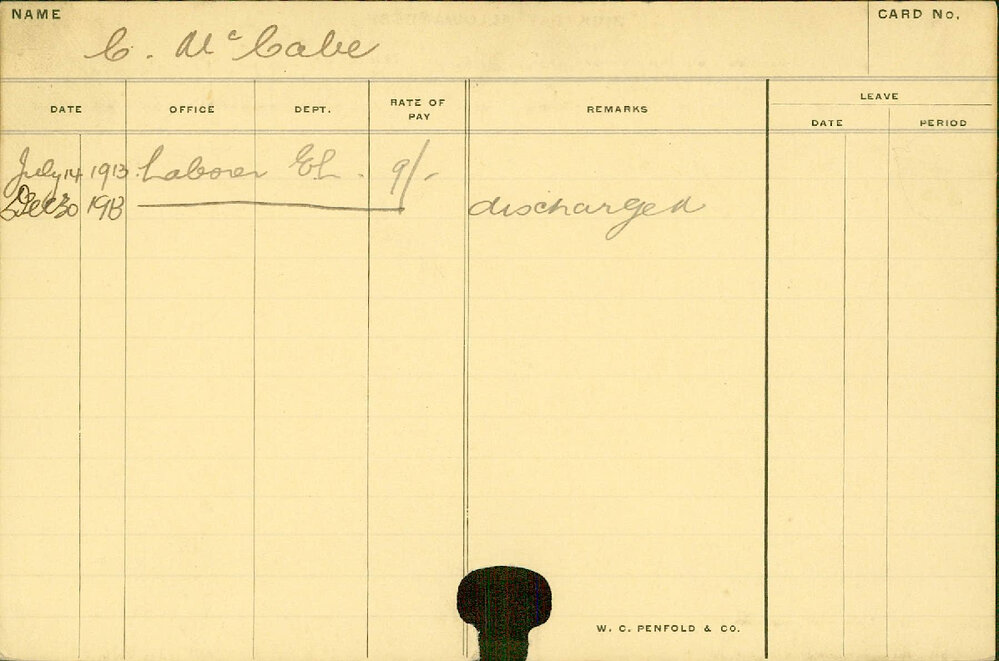 NAME
C. McCabe
CARD No.
DATE OFFICE DEPT. RATE OF PAY REMARKS LEAVE
DATE PERIOD
July 14 1913 Laborer EL. 9/-
Dec 30 1913 discharged
W. C. PENFOLD & CO.